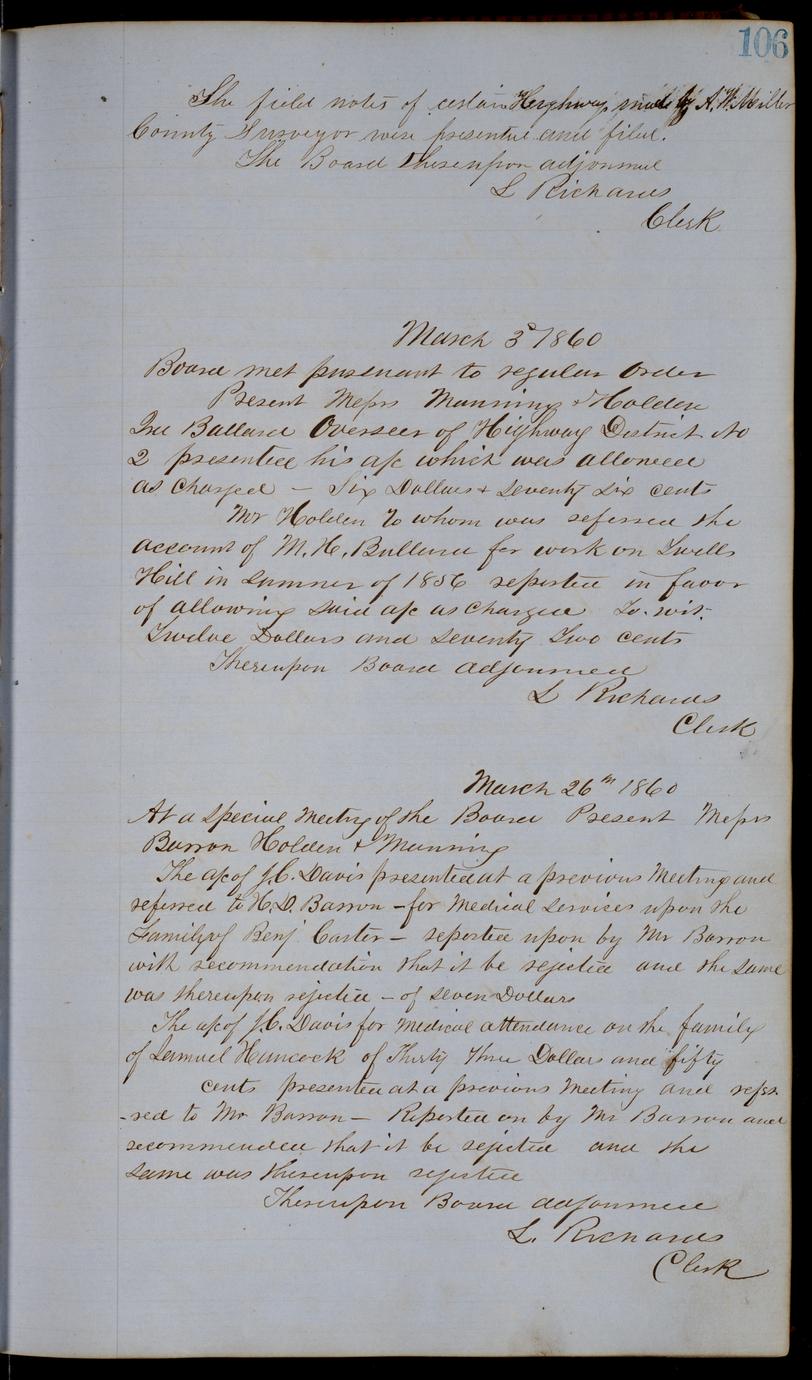 106
The field notes of certain Highway made by A. W. Miller
County Surveyor were presented and filed.
The Board thereupon adjourned
L Richards
Clerk
March 3d 1860
Board met pursuant to regular Order
Present Messrs Manning & Holden
Ballard Overseer of Highway District No
2 presented his a/c which was allowed
as charged – Six Dollars & seventy six cents
Mr Holden to whom was referred the
account of M. H. Bullard for work on
Hill in Summer of 1856 reported in favor
of allowing said a/c as charged To. wit.
Twelve Dollars and seventy Two cents
Thereupon Board adjourned
L Richards
Clerk
March 26th 1860
At a special Meeting of the Board Present Messrs
Barron Holden & Manning
The a/c of J. C. Davis presented at a previous Meeting and
referred to H. D. Barron – for Medical services upon the
Family of Benj Carter – reported upon by Mr Barron
with recommendation that it be rejected and the same
was thereupon rejected – of seven Dollars
The a/c of J. C. Davis for Medical attendance on the family
of Samuel Hancock of Thirty Three Dollars and fifty
cents presented at a previous Meeting and refer
-red to Mr Barron – Reported on by Mr Barron and
recommended that it be rejected and the
same was thereupon rejected
Thereupon Board adjourned
L. Richards
Clerk